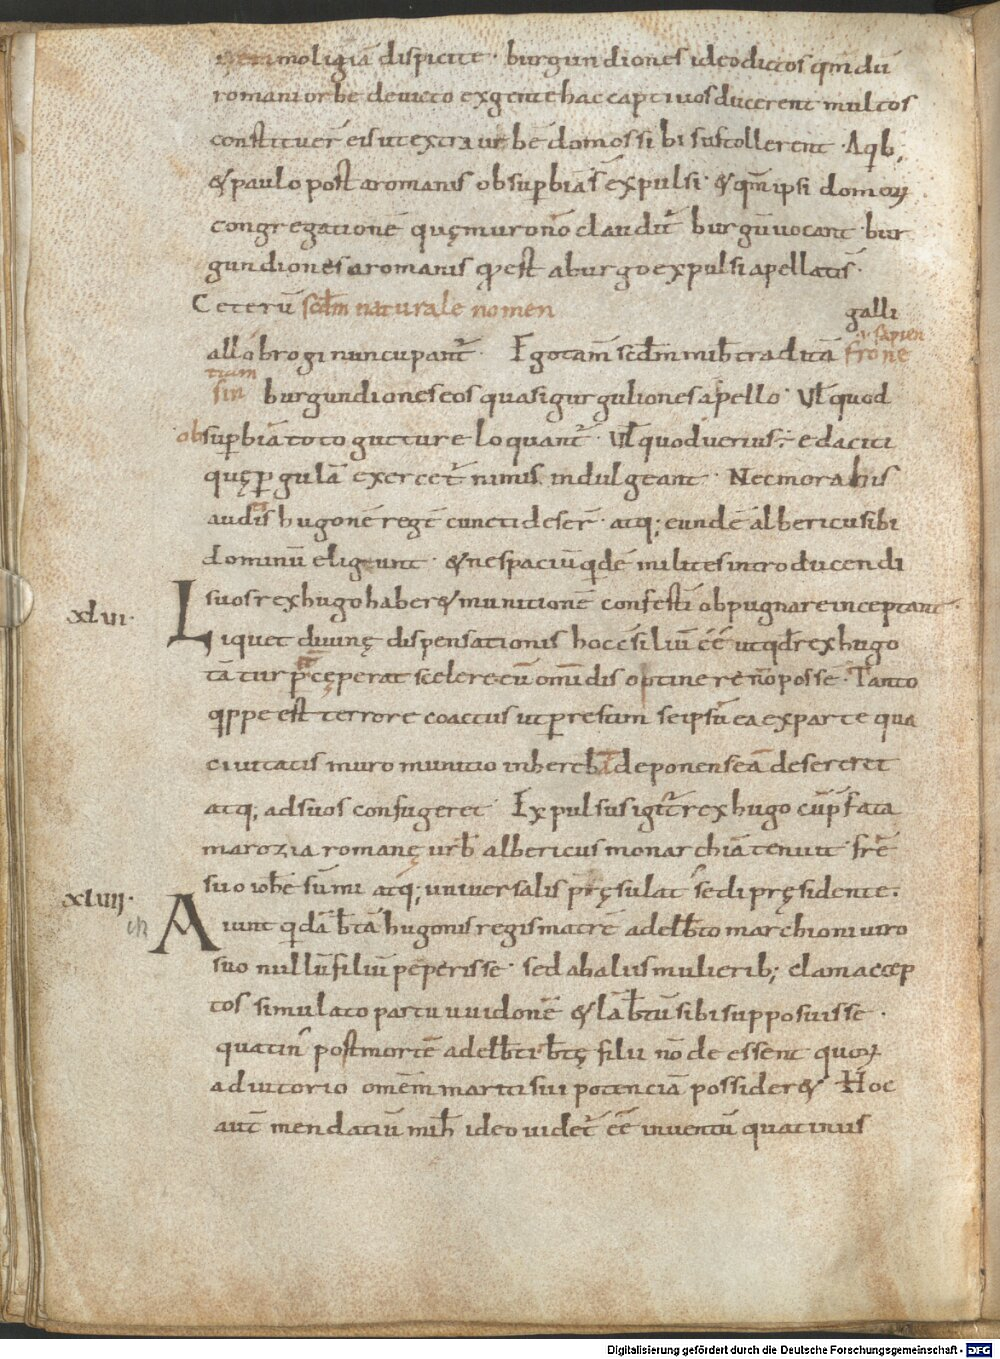 ętimoligiã dispicite · burgundiones ideo dictos qm̃ dũ
romani orbe deuicto ex gente hac captiuos ducerent multos
constituer̃ eis ut extra urbẽ domos sibi sustollerent · A qib;
& paulo post a romanis ob sup̱biã s̃ expulsi · & qm̃ ipsi domoꝝ
congregationẽ quę muro nõ claudit̃ burgũ uocant · bur
gundiones a romanis qđ est a burgo expulsi apellati s̃ ·
Ceterũ scđm naturale nomen
galli
allobrogi nuncupant̃ · Ego tam̃ scđm mihi traditã
ł sapien
tiam
burgundiones eos quasi gurguliones apello · Vł quod
ob sup̱biã toto gutture loquant̃ · Vł quod uerius ÷ edaciti
quę p̱ gulã exercet̃ nimis indulgeant · Nec mora his
auditis hugonẽ regẽ cuncti deser̃ · atq; eundẽ albericũ sibi
dominũ eligunt · & ne spaciũ qidẽ milites introducendi
suos rex hugo haber& munitionẽ confestĩ obpugnare inceptant ·
xlvi ·
Liquet diuinę dispensationis hoc c̃siliũ ẽẽ ut qđ rex hugo
tã turp̱ cęperat scelere cũ om̃imodis optinere nõ posse · Tanto
qippe est terrore coactus ut p̱ restim seipsũ ea ex parte qua
ciuitatis muro munitio inhereb̃ deponens eã desereret
atq; ad suos confugeret · Expulsus igit̃ rex hugo cũ p̱fata
marozia romanę urb̃ albericus monarchiã tenuit fr̃e
suo ioh̃e sũmi atq; uniuersalis pręsulat᾽ sedi pręsidente ·
xlvii ·
Aiunt qidã b̃tã hugonis regis matrẽ adelb̃to marchioni uiro
suo nullũ filiũ peperisse · sed ab aliis mulierib; clam accep
tos simulato partu uuidonẽ & lãb̃tũ sibi supposuisse ·
quatin᾽ post mortẽ adelb̃ti b̃tę filii nõ deessent quoꝝ
adiutorio om̃em mariti sui potenciã possider& · Hoc
aut̃ mendatiũ mih̃ ideo uidet̃ ẽẽ inuentũ quatinus
Digitalisierung gefördert durch die Deutsche Forschungsgemeinschaft - DFG